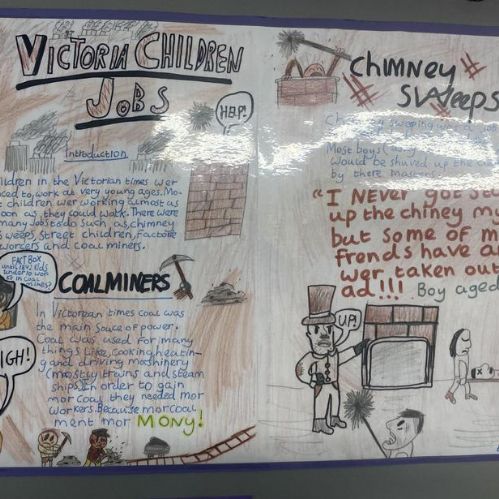 VICTORIA CHILDREN
JOBS
HELP!
Introduction
ildren in the Victorian times wer
ced to work at very young ages. Mo-
t children wer working almost as
oon as they could work. There were
many Jobs to do such as, chimney
sweeps, street children, factore
worcers and coal miners.
FACT BOX
COALMINERS
In Victorian times coal was
the main souce of power.
Coal was used for many
things like, cooking, heatin-
g and driving mashinery
(mostly trains and steam
ships). In order to gain
mor coal they needed mor
workers. Because mor coal
ment mor MONY!
IGH!
Chimney
Sweeps
Most boys
would be shuved up the
by there masters
"I NEVER got st
up the chiney m
but some of m
frends have a
wer taken out
ad!!! Boy aged
UP!